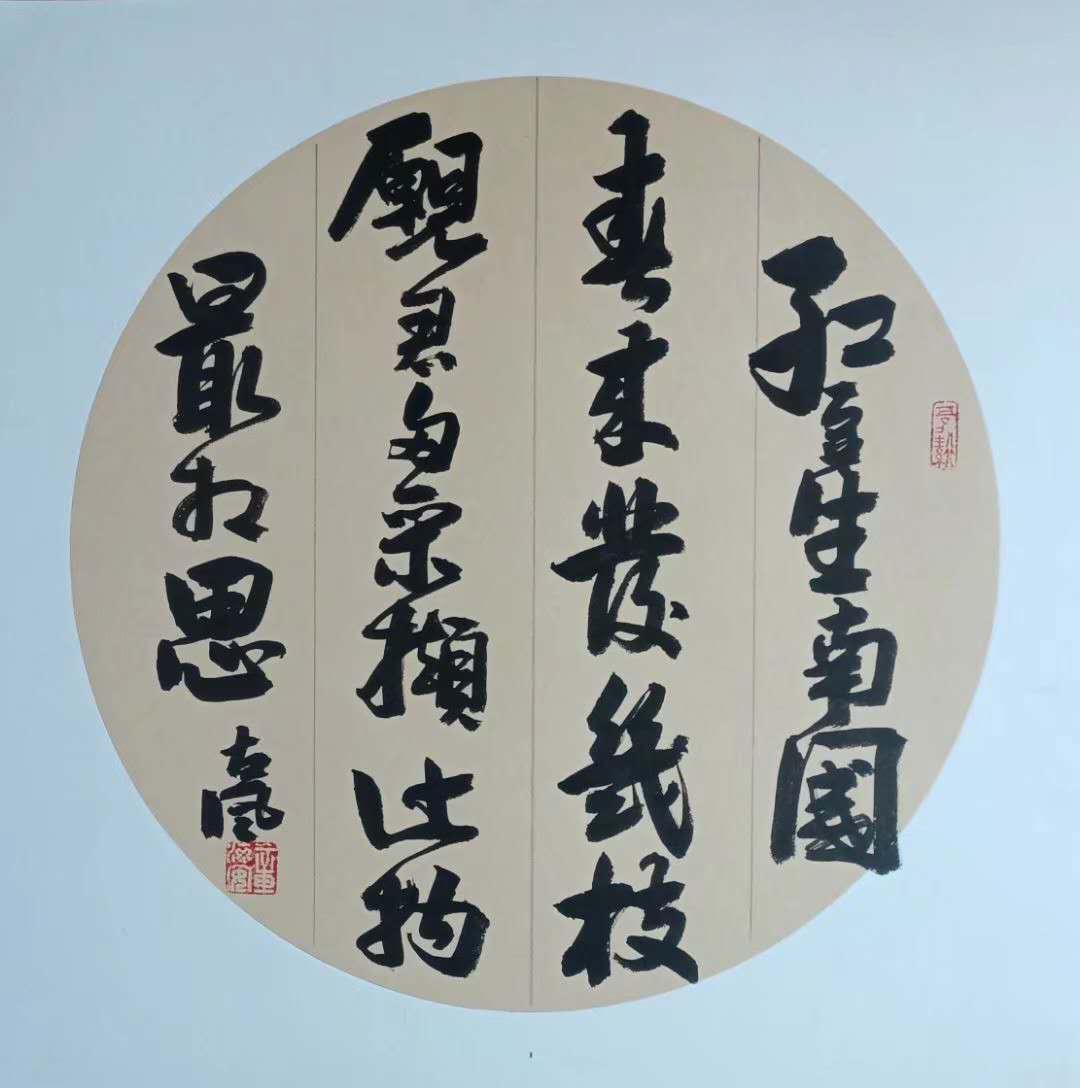 紅豆生南國
春来發幾枝
願君多采擷此物
最相思